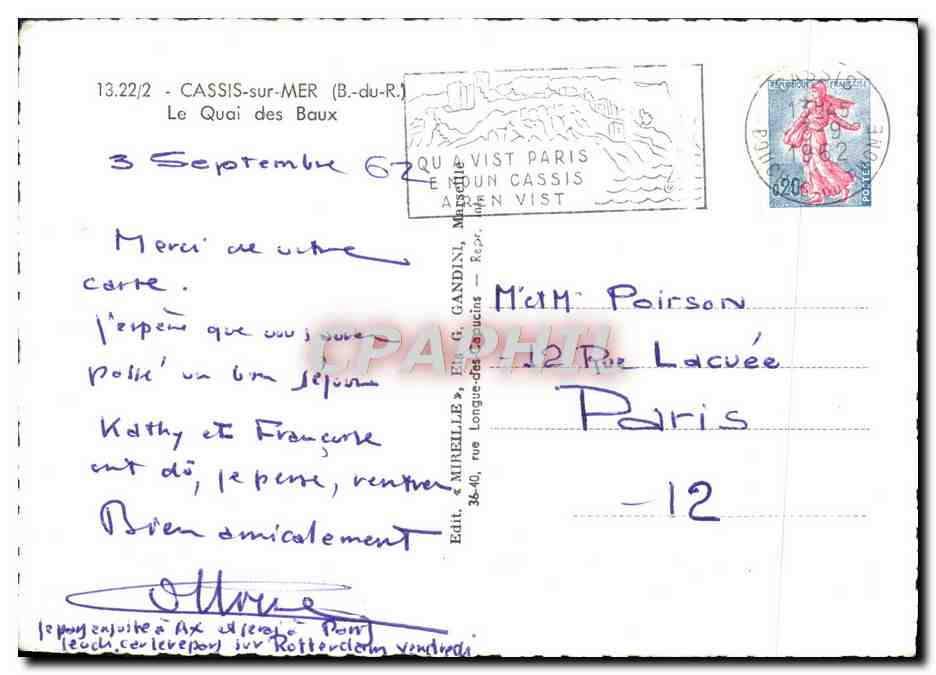 13.22/2 - CASSIS-sur-MER (B.-du-R.)
Le Quai des Baux
3 Septembre 62
Merci de votre
carte.
J'espère que vous avez
passé un bon séjour
Kathy et Françoise
ont dû, je pense, rentrer
Bien amicalement
je pars ensuite à Aix et serai à Paris
jeudi, car je repars sur Rotterdam vendredi
QU A VIST PARIS
E NOUN CASSIS
A REN VIST
Edit. « MIREILLE », Ets G. GANDINI, Marseille
36-40, rue Longue-des-Capucins — Repr. int.
REPUBLIQUE FRANÇAISE
0,20
POSTES
CASSIS
17H45
3-9
1962
BOUCHES DU RHONE
M et M Poirson
12 Rue Lacuée
Paris
-12
CPAPHIL